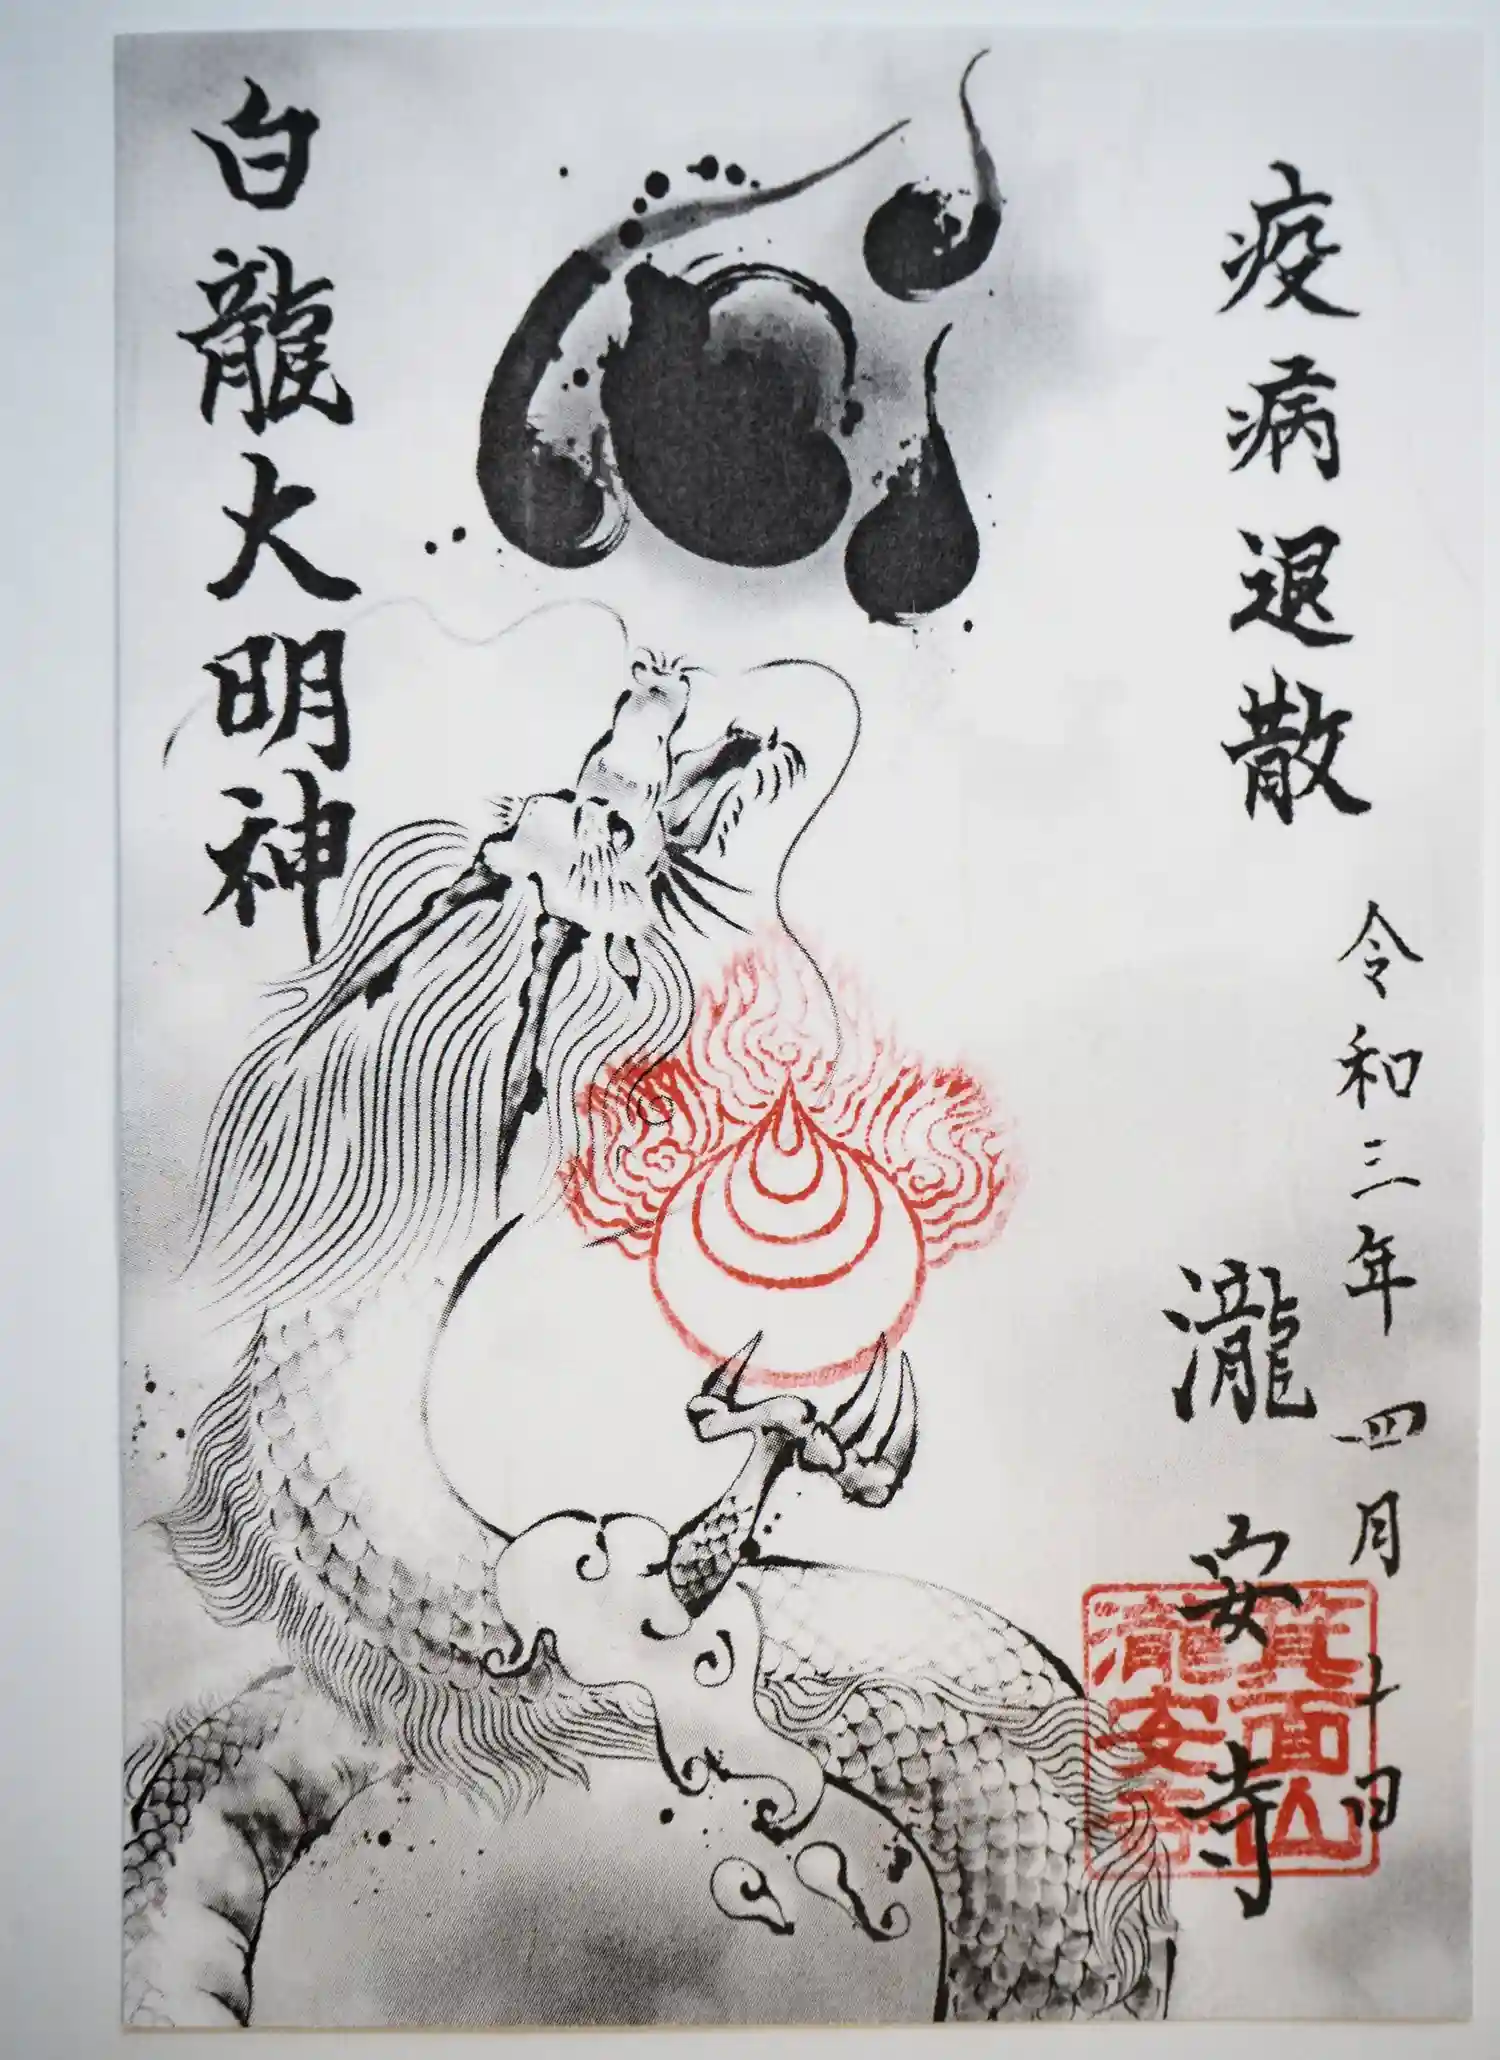 疫病退散
令和三年四月十日
瀧安寺
箕面山
瀧安寺
白龍大明神